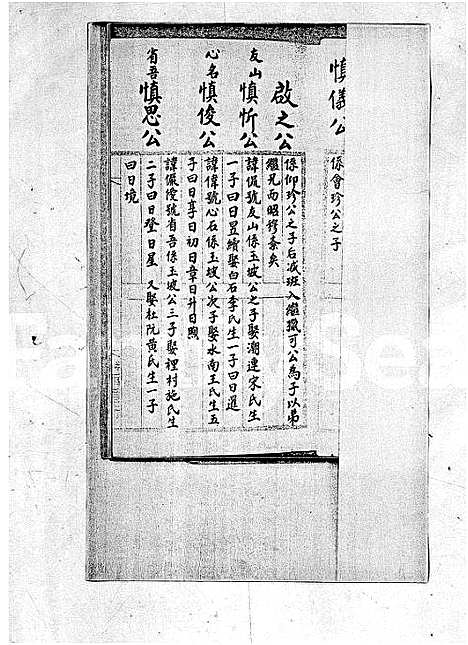 慎儀公
係會珍公之子
啟之公
係仰珍公之子后减班入繼獵可公為子以弟
繼兄而昭穆紊矣
友山 慎忻公
諱侃號友山係玉坡公之子娶潮連宋氏生
一子曰日昱續娶白石李氏生一子曰日暹
心名 慎俊公
諱偉號心石係玉坡公次子娶水南王氏生五
子曰日享日初日章日升日照
省吾 慎思公
諱儼號省吾係玉坡公三子娶裡村施氏生
二子曰日登日星 又娶杜阮黄氏生一子
曰日境